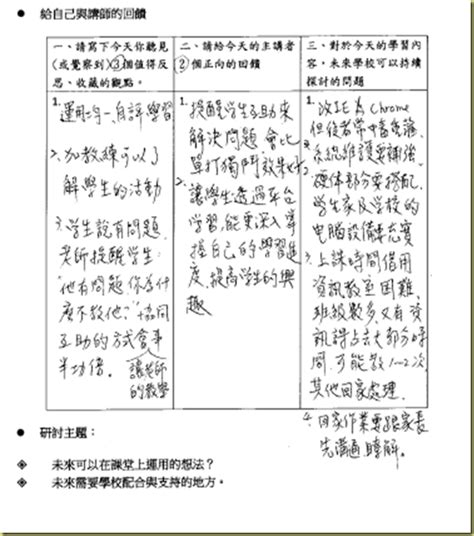 ● 給自己與講師的回饋
一、請寫下今天你聽見
(或覺察到)③個值得反
思、收藏的觀點。
二、請給今天的主講者
②個正向的回饋
三、對於今天的學習內
容，未來學校可以持續
探討的問題
1.
運用均一自評學習
2.加教練可以了
解學生的活動
3.學生說有問題,
老師提醒學生:
"他有問題你為什
麼不教他?"協同
互助的方式會事
半功倍。
讓老師
的教學
1.提醒學生互助來
解決問題,會比
單打獨鬥效果好
2.讓學生透過平台
學習,能更深入掌
握自己的學習進
度,提高學生的興
趣
1.改IE為Chrome
但使者常中毒
系統維護要補強
2.硬体部分要搭配,
學生家及學校的
电腦設備要充實
3.上課時間借用
資訊教室困難,
班級數多,又有資
訊課占去大部分時
間,可能教1~2次,
其他回家處理.
4.回家作業要跟家長
先溝通瞭解。
● 研討主題：
◈ 未來可以在課堂上運用的想法？
◈ 未來需要學校配合與支持的地方。